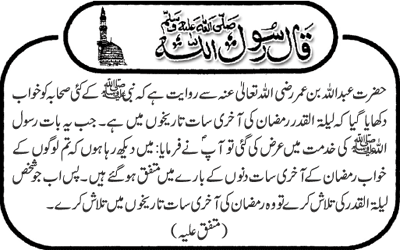 قال رسول اللہ صلی اللہ علیہ وسلم
حضرت عبداللہ بن عمر رضی اللہ تعالیٰ عنہ سے روایت ہے کہ نبی ﷺ کے کئی صحابہ کو خواب
دکھایا گیا کہ لیلۃ القدر رمضان کی آخری سات تاریخوں میں ہے۔ جب یہ بات رسول
اللہ ﷺ کی خدمت میں عرض کی گئی تو آپؐ نے فرمایا: میں دیکھ رہا ہوں کہ تم لوگوں کے
خواب رمضان کے آخری سات دنوں کے بارے میں متفق ہو گئے ہیں۔ پس اب جو شخص
لیلۃ القدر کی تلاش کرے تو وہ رمضان کی آخری سات تاریخوں میں تلاش کرے۔
(متفق علیہ)